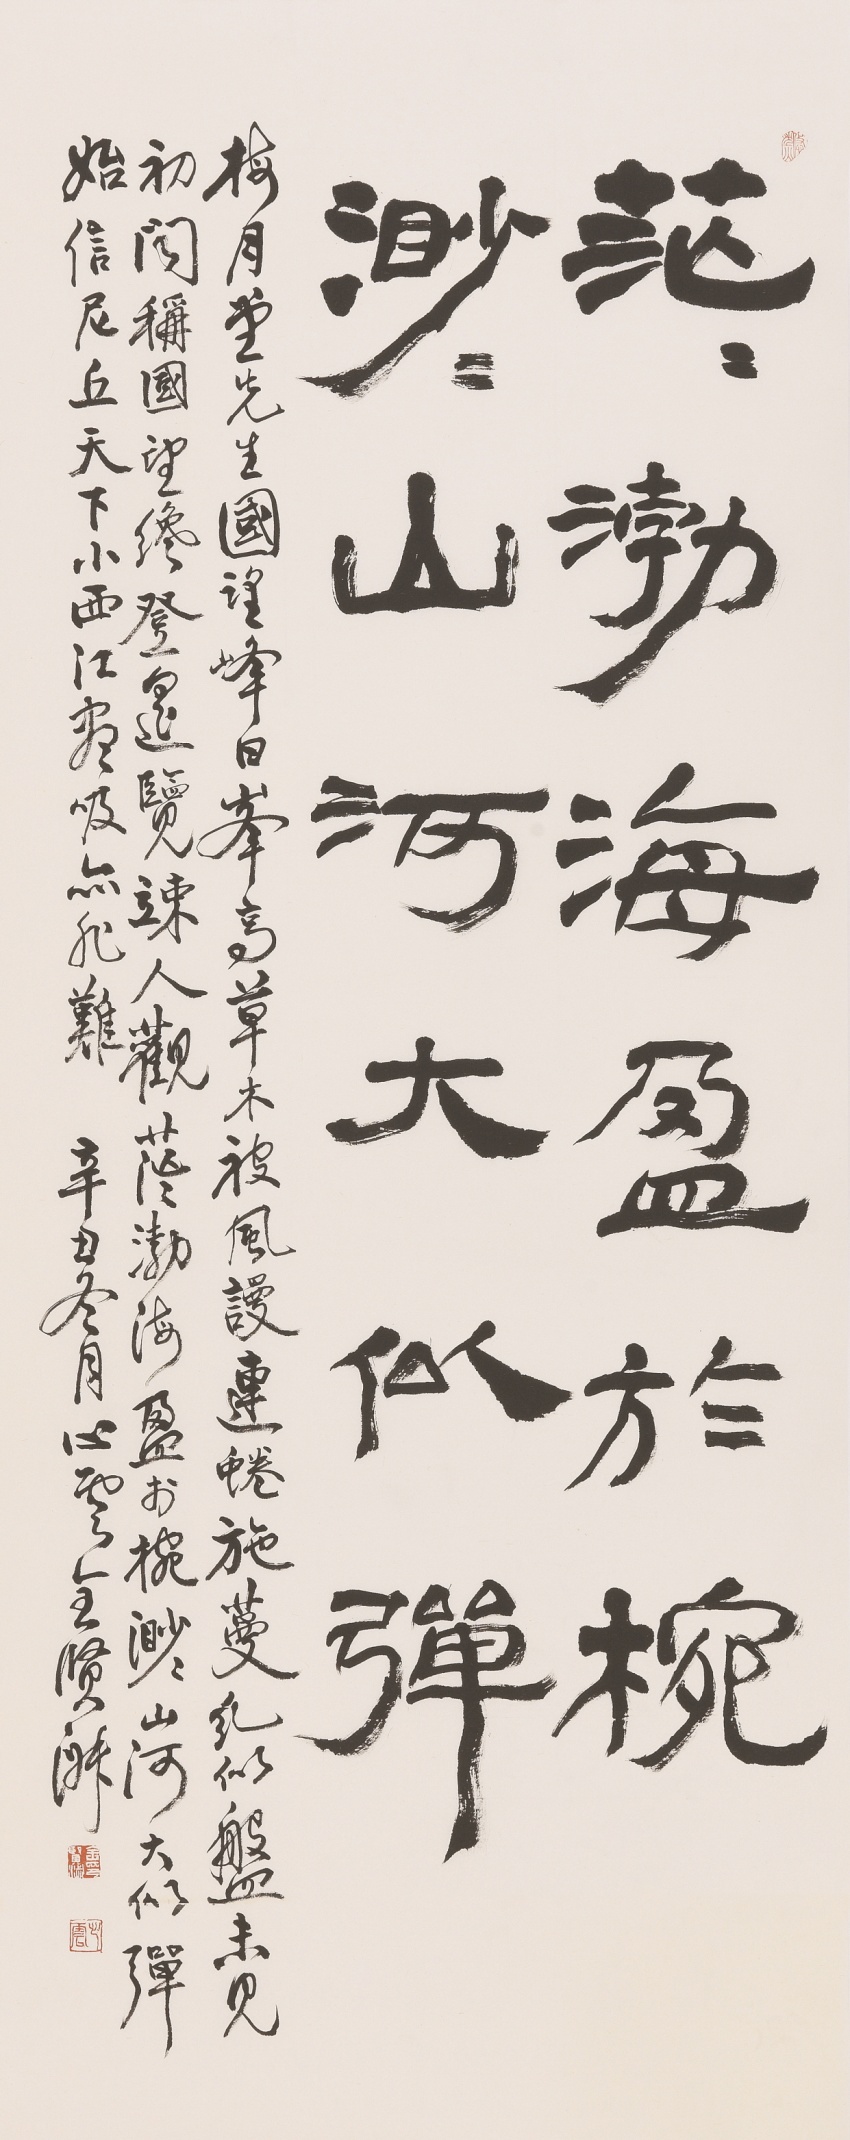 茫〻渤海盈於椀
渺〻山河大似彈
梅月堂先生國望峰曰峯高草木被風謾連蜷施蔓乱似盤未見
初聞稱國望纔登覽竦人觀茫〻渤海盈於椀渺〻山河大似彈
始信尼丘天下小西江盡吸亦非難 辛丑冬月心雲金賢